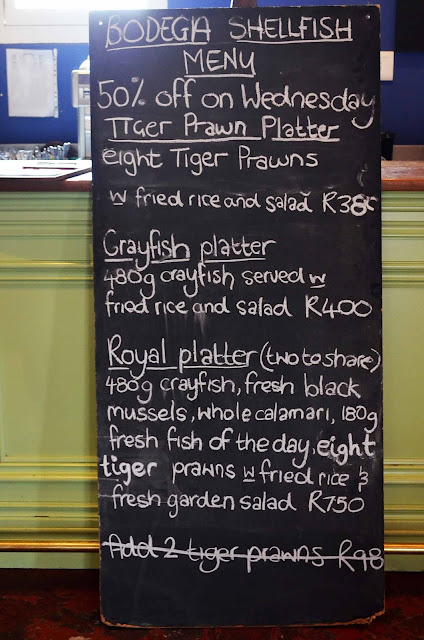 BODEGA SHELLFISH
MENU
50% off on Wednesday
TIGER Prawn Platter
eight Tiger Prawns
w fried rice and salad
Crayfish platter
480g crayfish served w
fried rice and salad R400
Royal platter (two to share)
480g crayfish, fresh black
mussels, whole calamari, 180g
fresh fish of the day, eight
tiger prawns w fried rice &
fresh garden salad R750
Add 2 tiger prawns R98